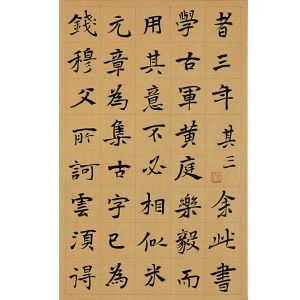 者三年其三余此書
學古軍黃庭樂毅而
用其意不必相似米
元章為集古字已為
錢穆父所訶雲須得